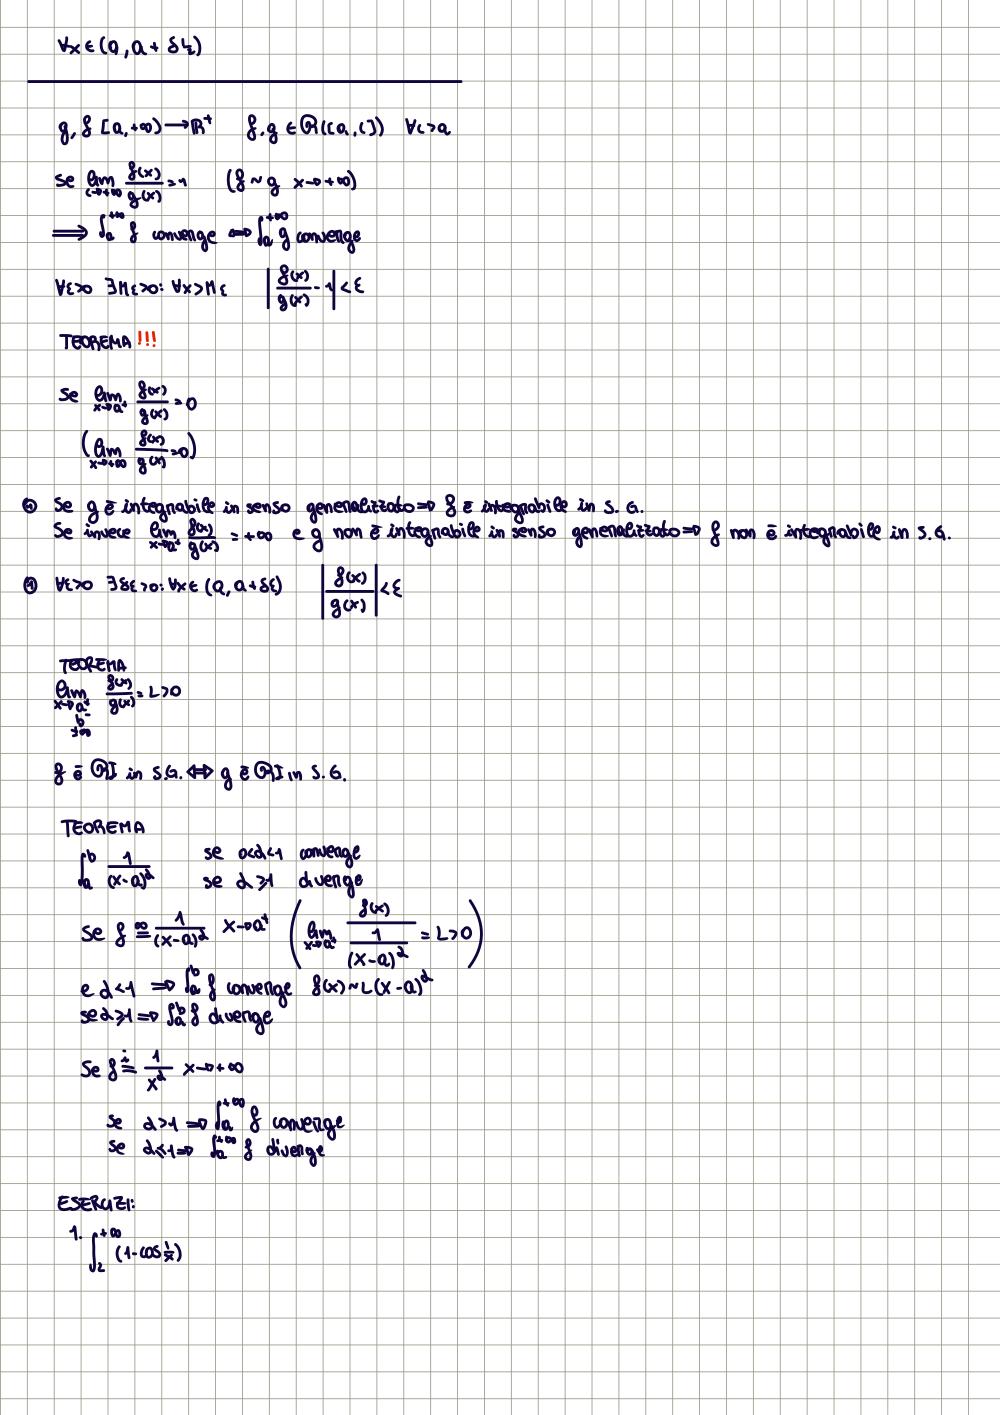 ∀x∈(a, a+δ½)
g, f [a,+∞)→ℝ⁺ f, g ∈ ℛ([a,c]) ∀c>a
Se lim c→+∞ f(x)/g(x) = 1 (f ~ g x→+∞)
⟹ ∫ₐ^+∞ f converge ⟺ ∫ₐ^+∞ g converge
∀ε>0 ∃Mε>0: ∀x>Mε |f(x)/g(x) - 1| < ε
TEOREMA !!!
Se lim x→a⁺ f(x)/g(x) = 0
(lim x→+∞ f(x)/g(x) = 0)
Se g è integrabile in senso generalizzato ⇒ f è integrabile in S. G.
Se invece lim x→a⁺ f(x)/g(x) = +∞ e g non è integrabile in senso generalizzato ⇒ f non è integrabile in S.G.
① ∀ε>0 ∃δε>0: ∀x∈(a, a+δε) |f(x)/g(x)| < ε
TEOREMA
lim x→a⁺ b⁻ +∞ f(x)/g(x) = L>0
f è ℛI in S.G. ⟺ g è ℛI in S.G.
TEOREMA
∫ₐᵇ 1/(x-a)^α se 0<α<1 converge
se α≥1 diverge
Se f ≅^∞ 1/(x-a)^α x→a⁺ (lim x→a⁺ f(x)/(1/(x-a)^α) = L>0)
e α<1 ⇒ ∫ₐᵇ f converge f(x)~L(x-a)^α
se α≥1 ⇒ ∫ₐᵇ f diverge
Se f ≐^i 1/x^α x→+∞
se α>1 ⇒ ∫ₐ^+∞ f converge
se α≤1 ⇒ ∫ₐ^+∞ f diverge
ESERCIZI:
1. ∫₂^+∞ (1-cos 1/x)